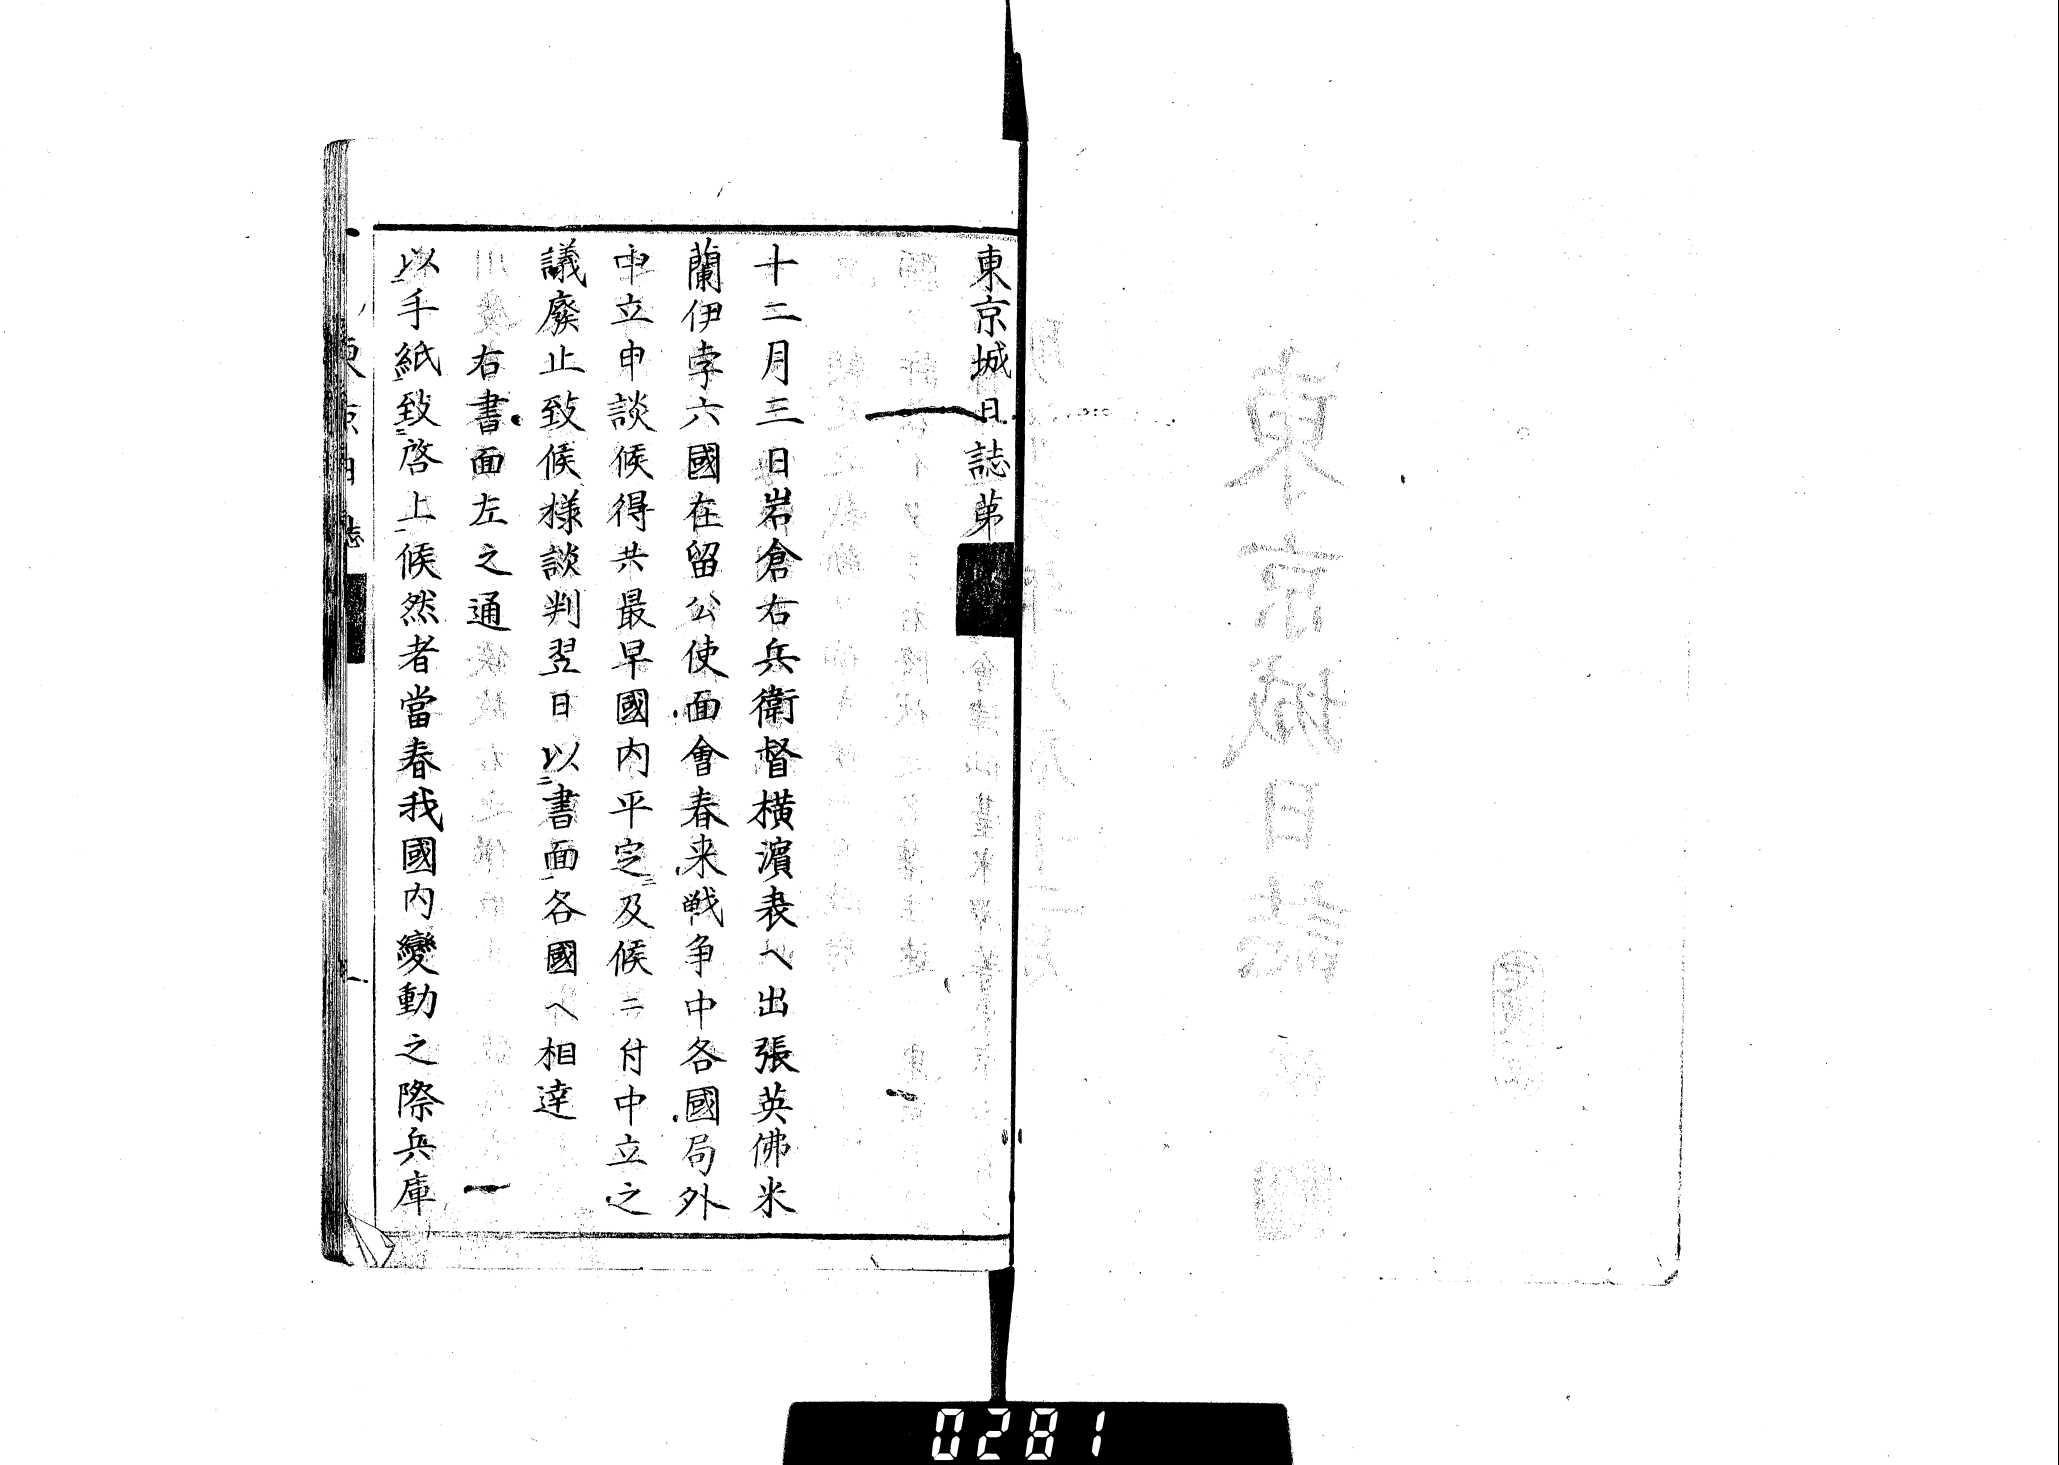 東京城日誌第
十二月三日岩倉右兵衛督横濵表ヘ出張英佛米
蘭伊孛六國在留公使面會春来戦争中各國局外
中立申談候得共最早國内平定ニ及候ニ付中立之
議廢止致候様談判翌日以書面各國ヘ相達
右書面左之通
以手紙致啓上候然者當春我國内變動之際兵庫
東京日誌
東京城日誌
0281